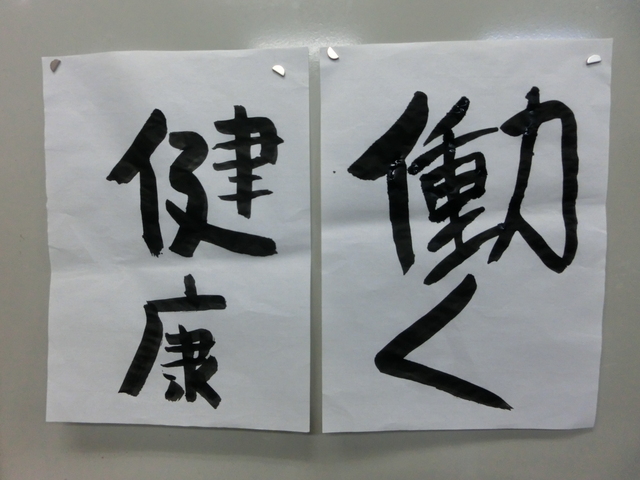 働く
健康